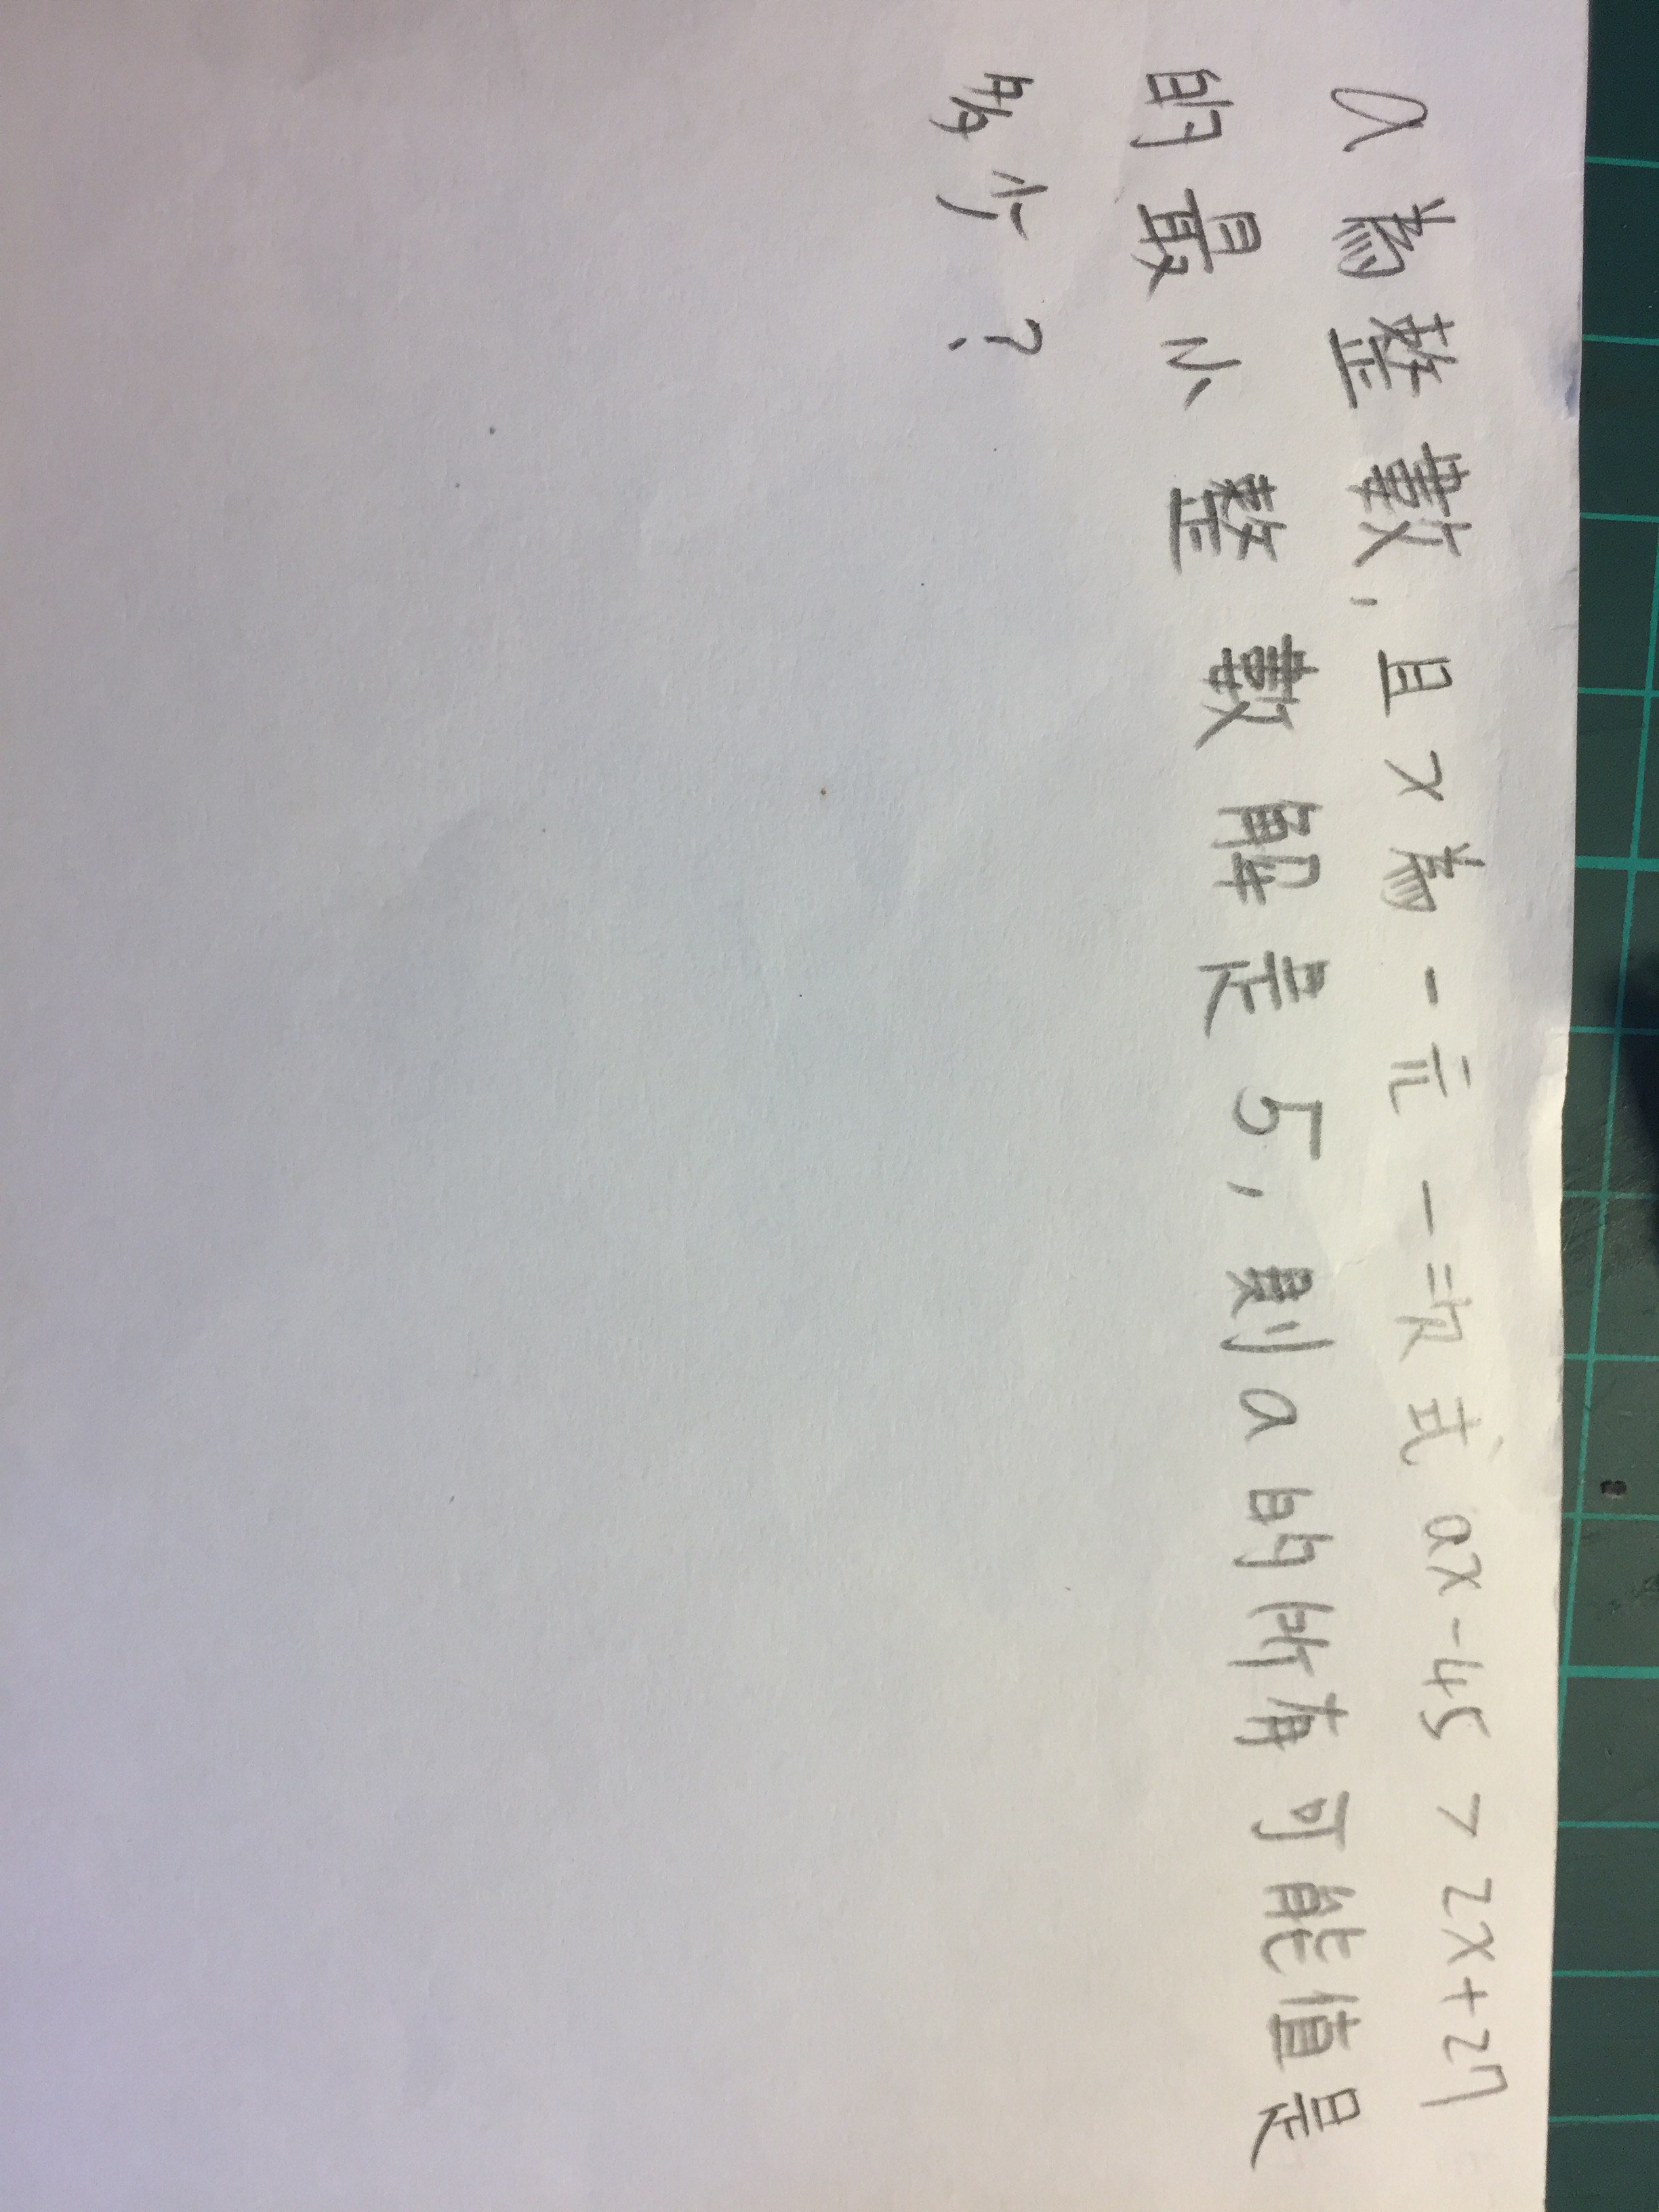 a為整數,且x為一元一次式ax-45>2x+27
的最小整數解是5,則a的所有可能值是
多少?